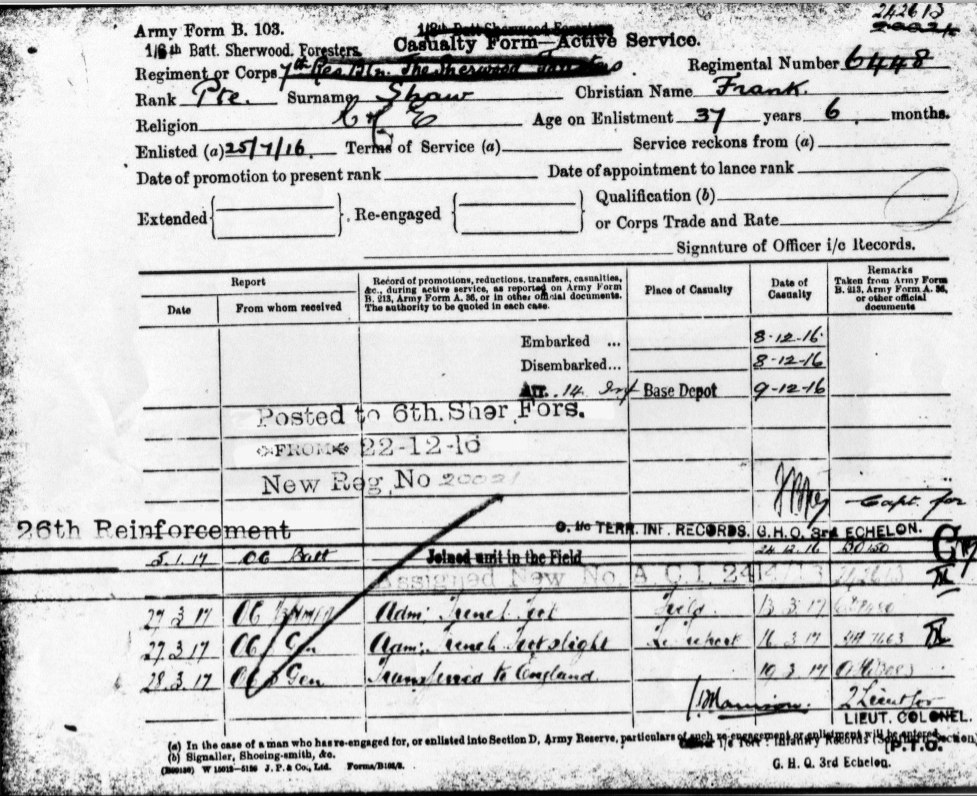 Army Form B. 103.
1/8th Batt. Sherwood Foresters
242613
20021
1/8th Batt. Sherwood. Foresters.
Casualty Form—Active Service.
Regiment or Corps 7th Res Bn. The Sherwood Foresters Regimental Number 6448
Rank Pte. Surname Shaw Christian Name Frank.
Religion C of E Age on Enlistment 37 years 6 months.
Enlisted (a) 25/7/16. Terms of Service (a) Service reckons from (a)
Date of promotion to present rank Date of appointment to lance rank
Extended Re-engaged Qualification (b)
or Corps Trade and Rate
Signature of Officer i/c Records.
Report
Date From whom received
Record of promotions, reductions, transfers, casualties,
&c., during active service, as reported on Army Form
B. 213, Army Form A. 36, or in other official documents.
The authority to be quoted in each case.
Place of Casualty
Date of
Casualty
Remarks
Taken from Army Form
B. 213, Army Form A. 36,
or other official
documents
Embarked ... 8-12-16.
Disembarked... 8-12-16
Arr. 14 Inf Base Depot 9-12-16
Posted to 6th. Sher Fors.
FROM 22-12-16
New Reg. No 20021
Capt. for
O. i/c TERR. INF. RECORDS. G.H.Q. 3rd ECHELON.
26th Reinforcement
5.1.17 OC Batt Joined unit in the Field 24.12.16
Assigned New No. A.C.I. 2414/ 242613
27.3.17 OC Adm: Trench Feet Field 13.3.17
27.3.17 OC Gen Adm: Trench Feet slight 16.3.17
28.3.17 OC Gen Transferred to England 19.3.17
2 Lieut for
LIEUT. COLONEL.
(a) In the case of a man who has re-engaged for, or enlisted into Section D, Army Reserve, particulars of such re-engagement or enlistment will be entered.
(b) Signaller, Shoeing-smith, &c.
P.T.O.
W 15012—5156 J. P. & Co., Ltd. Forms/B103/2.
G. H. Q. 3rd Echelon.